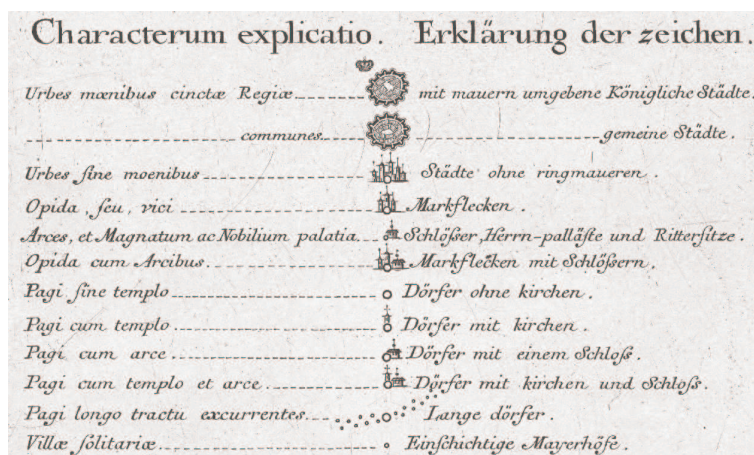 Characterum explicatio. Erklärung der zeichen.
Urbes mœnibus cinctæ Regiæ mit mauern umgebene Königliche Städte.
communes gemeine Städte.
Urbes ſine moenibus Städte ohne ringmaueren.
Opida, ſeu, vici Markflecken.
Arces, et Magnatum ac Nobilium palatia Schlöſser, Herrn-palläſte und Ritterſitze.
Opida cum Arcibus Markflecken mit Schlöſsern.
Pagi ſine templo Dörfer ohne kirchen.
Pagi cum templo Dörfer mit kirchen.
Pagi cum arce Dörfer mit einem Schloſs.
Pagi cum templo et arce Dörfer mit kirchen und Schloſs.
Pagi longo tractu excurrentes Lange dörfer.
Villæ ſolitariæ Einſchichtige Mayerhöfe.